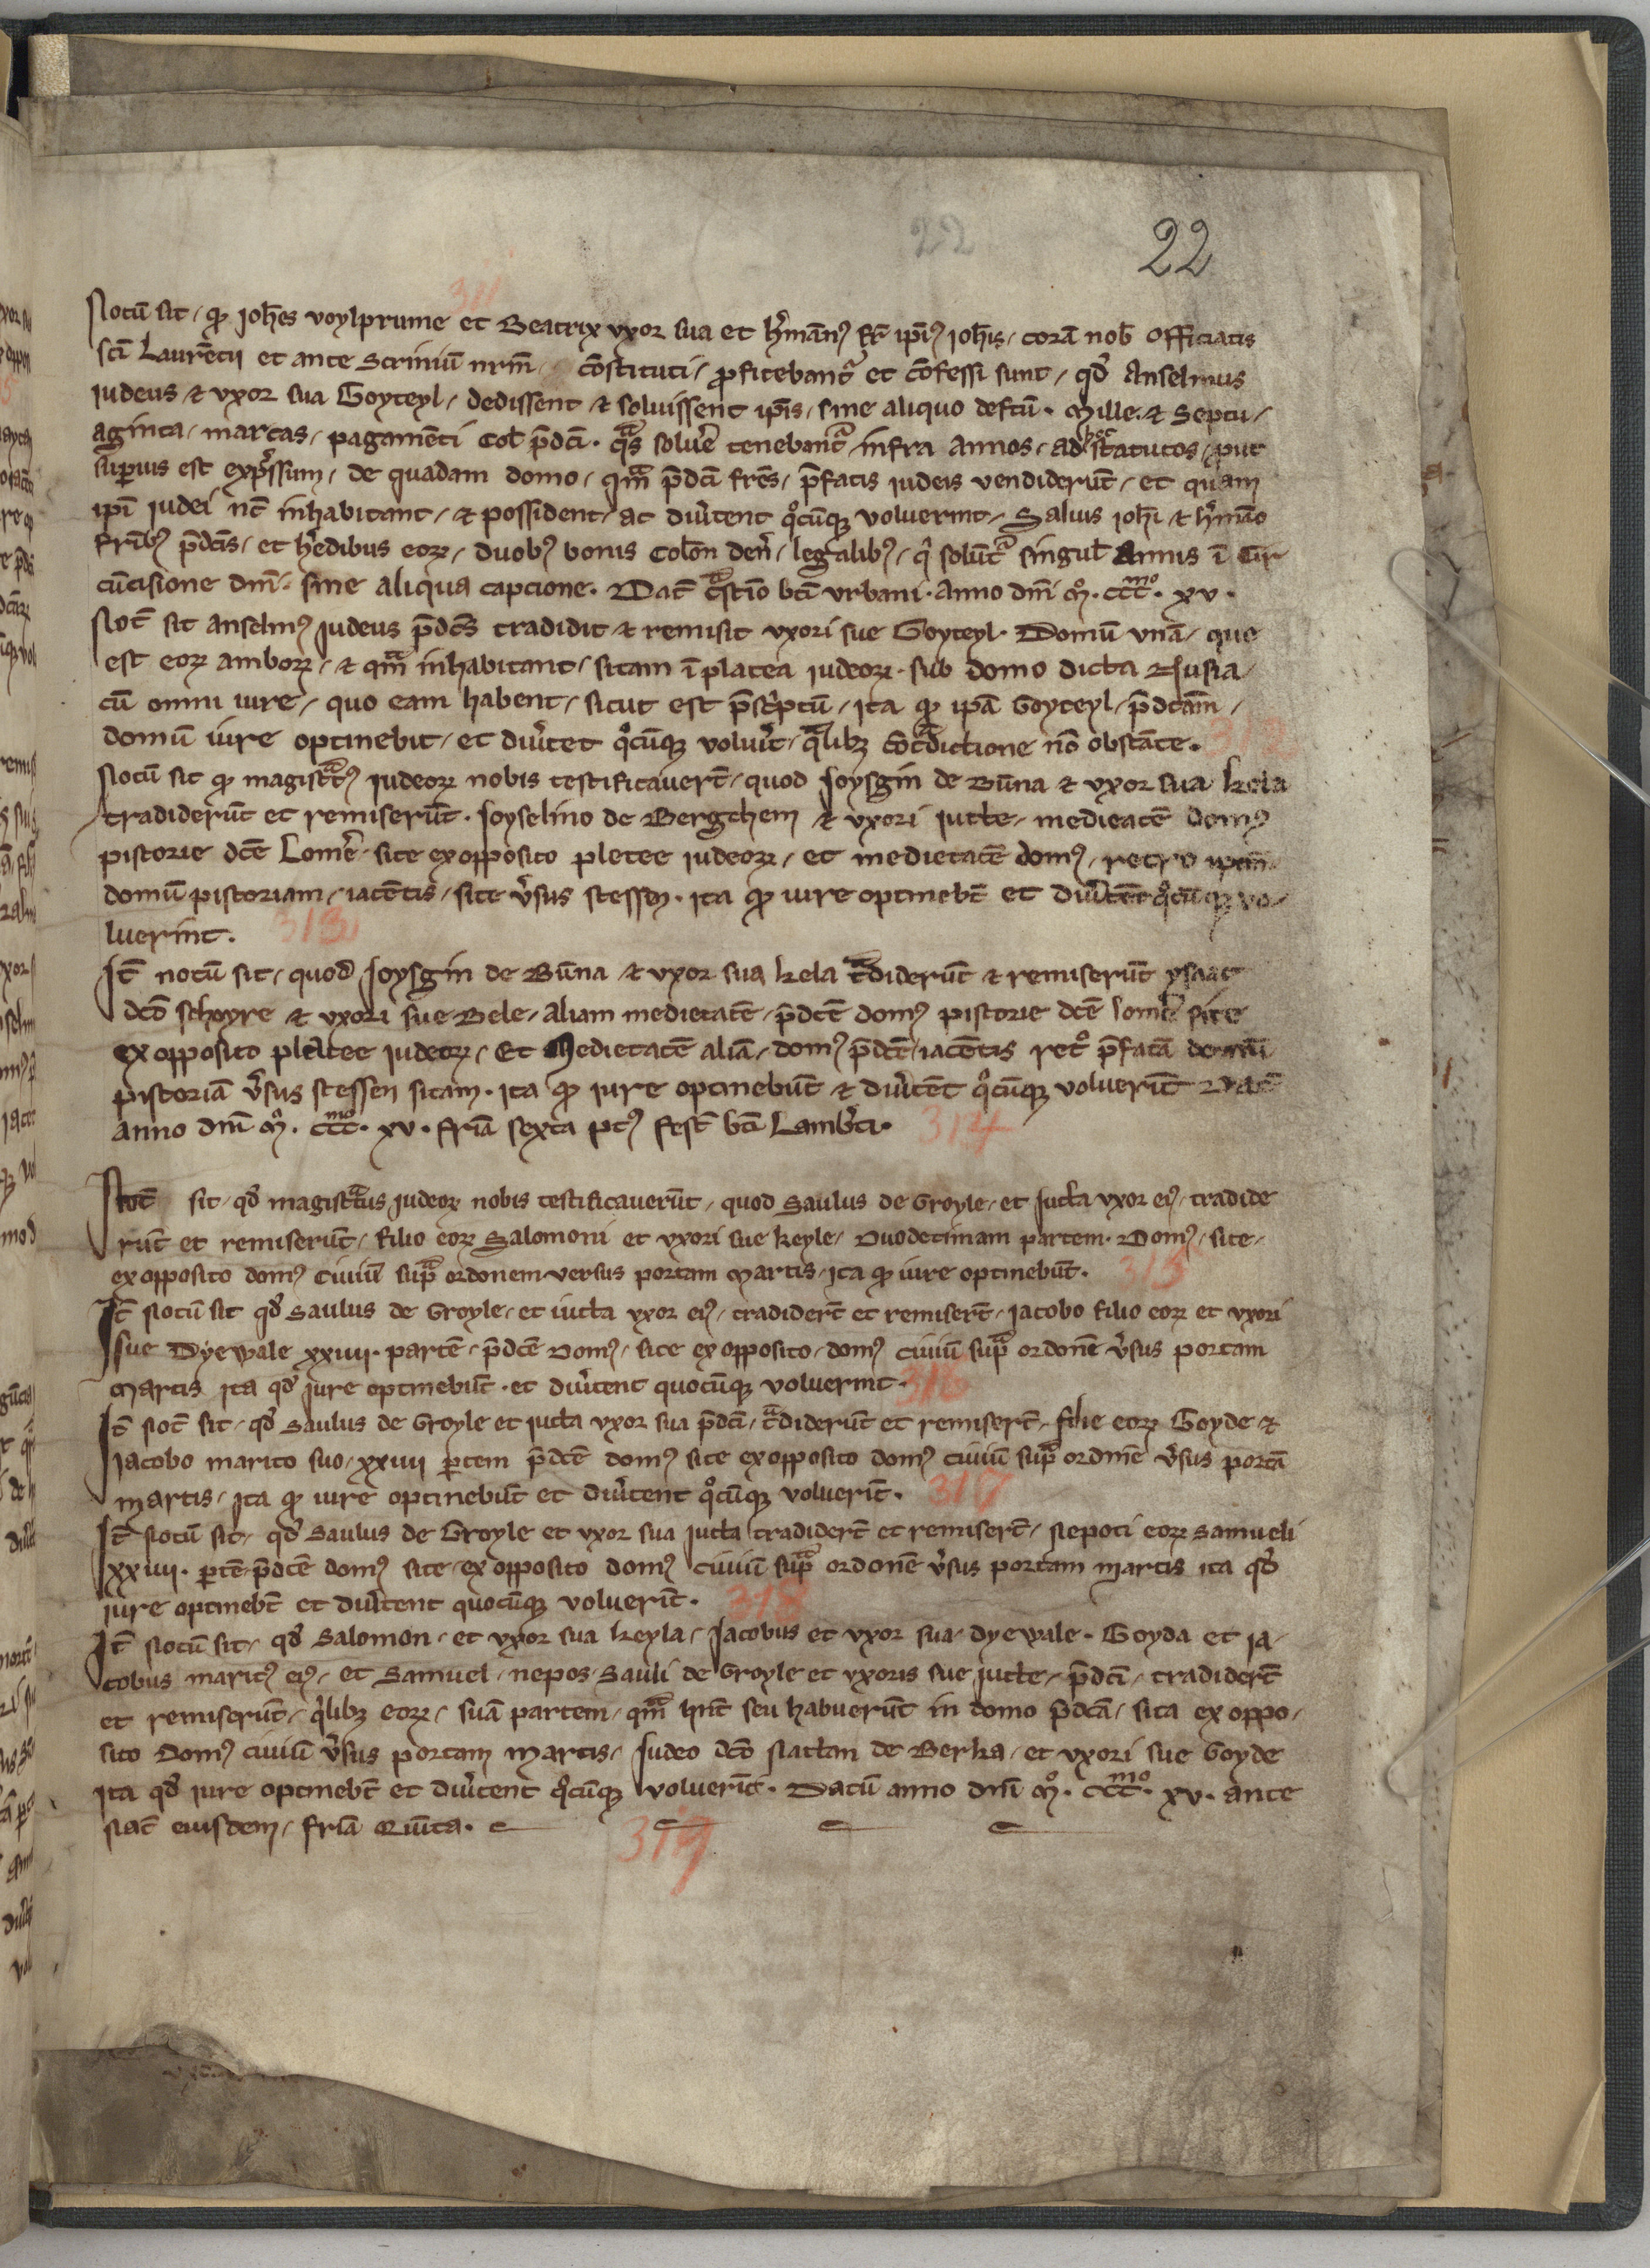 22
22
311
Notū sit / qͦ Joh̄es voylprume et Beatrix vxor sua et h̓mān9 fr̄ ip̄i9 Joh̄is / corā nob̄ officiatis
sc̄i Laurētii et ante scrinium nr̄m / cōstituti / ꝓfitebant᷑ et cōfessi sunt / qd̓ Anselmus
iudeus ⁊ vxor sua Goyteyl / dedissent ⁊ soluissent ip̄is / sine aliquo defc̄u · Mille · ⁊ septu /
aginta / marcas / pagamēti Col̄ p̄dc̄i · qͣs solu̓e tenebantͣ infra annos / ad hoc statutos / ꝓut
suꝑius est exp̓ssum / de quadam domo / qͣm p̄dc̄i fr̄es / p̄fatis iudeis vendiderūt / et quam
ip̄i iudei nc̄ inhabitant / ⁊ possident / ac diu̓tent qͦcūqꝫ voluerint / Saluis Joh̄i ⁊ h̓māo
fr̄ib9 p̄dc̄is / et h̓edibus eoꝝ / duob9 bonis Colon̄ den̓ / legalib9 / qͥ soluūtͣ singul̄ Annis ī Cir
cūcisione dn̄i · sine aliqua capcione · Dat̄ cͣstīo bt̄i vrbani · anno dn̄i mͦ · cccͫͦ · xv ·
Not̄ sit anselm9 Judeus p̄dc̄s tradidit ⁊ remisit vxori sue Goyteyl · Domū vnā / que
est eoꝝ amboꝝ / ⁊ qͣm inhabitant / sitam ī platea iudeoꝝ · sub domo dicta Rusia /
cū omni iure / quo eam habent / sicut est p̄sc̓ptū / ita qͦ ip̄a Goyteyl / p̄dc̄am /
domū iure optinebit / et diu̓tet qͦcūqꝫ volu̓it / qͣlibꝫ cōtͣdictione nō obstāte · 312
Notū sit qͦ magistͣt9 iudeoꝝ nobis testificauerūt / quod Joysgin de Būna ⁊ vxor sua kela
tradiderūt et remiserūt · Joyselino de Bergchem ⁊ vxori Jutte / medietatē dom9
pistorie dc̄e Lom̓e / site ex opposito pletee iudeoꝝ / et medietatē dom9 / retro ipam
domū pistoriam / iacētis / site v̓sus stessen · ita qͦ iure optinebt̄ et diu̓tēt qͦcūqꝫ vo /
luerint · 313
It̄ notū sit / quod Joysgin de Būna ⁊ vxor sua kela tͣdiderūt ⁊ remiserūt ysaac
dc̄o schoyre ⁊ vxori sue Bele / Aliam medietatē / p̄dc̄e dom9 pistorie dc̄e lom̓e site
ex opposito pletee iudeoꝝ / Et Medietatē aliā / dom9 p̄dc̄e / iacētis retͦ p̄fatā domū
pistoriā v̓sus stessen sitam · ita qͦ iure optinebūt ⁊ diu̓tēt qͦcūqꝫ voluerīt Dat̄
anno dn̄i mͦ · cccͫͦ · xv · fr̄ia sexta pt9 fest̄ bt̄i Lamb̓ti · 314
Not̄ sit / qd̓ magistͣtus Judeoꝝ nobis testificauerūt / quod Saulus de Groyle / et Jutta vxor ei9 / tradide
rūt et remiserūt / filio eoꝝ Salomoni et vxori sue keyle / Duodecimam partem · Dom9 / site /
ex opposito dom9 ciuiū supͣ ordonem versus portam Martis / ita qͦ iure optinebūt · 315
It̄ Notū sit qd̓ Saulus de Groyle / et iutta vxor ei9 / tradider̄t et remiser̄t / Jacobo filio eoꝝ et vxori
sue Dyewale xxiiii · partē / p̄dc̄e dom9 / site ex opposito / dom9 ciuiū supͣ ordonē v̓sus portam
Martis ita qd̓ iure optinebūt · et diu̓tent quocūqꝫ voluerint · 316
It̄ Not̄ sit / qd̓ Saulus de Groyle et iutta vxor sua p̄dc̄i / tͣdiderūt et remiser̄t / filie eoꝝ Goyde ⁊
Jacobo marito suo / xxiiii ꝑtem p̄dc̄e dom9 site ex opposito dom9 ciuiū supͣ ordinē v̓sus portā
martis / ita qͦ iure optinebūt et diu̓tent qͦcūqꝫ voluerīt · 317
It̄ Notū sit / qd̓ Saulus de Groyle et vxor sua Jutta tradider̄t et remiser̄t / Nepoti eoꝝ samueli
xxiiii · ꝑtē p̄dc̄e dom9 site / ex opposito dom9 ciuiū supͣ ordonē v̓sus portam martis ita qd̓
iure optinebt̄ et diu̓tent quocūqꝫ voluerīt · 318
It̄ Notū sit / qd̓ Salomon / et vxor sua keyla / Jacobus et vxor sua / dyewale · Goyda et ja /
cobus marit9 ei9 / et Samuel / nepos Sauli de Groyle et vxoris sue iutte / p̄dc̄i / tradider̄t
et remiserūt / qͥlibꝫ eoꝝ / suā partem / qͣm hn̄t seu habuerūt in domo p̄dc̄a / sita ex oppo /
sito dom9 ciuiū v̓sus portam martis / Judeo dc̄o Nattan de Berka / et vxori sue Goyde
ita qd̓ iure optinebt̄ et diu̓tent qͦcūqꝫ voluerīt · Datū anno dn̄i mͦ · cccͫͦ · xv · ante
Nat̄ eiusdem / fr̄ia Quīta ·
319